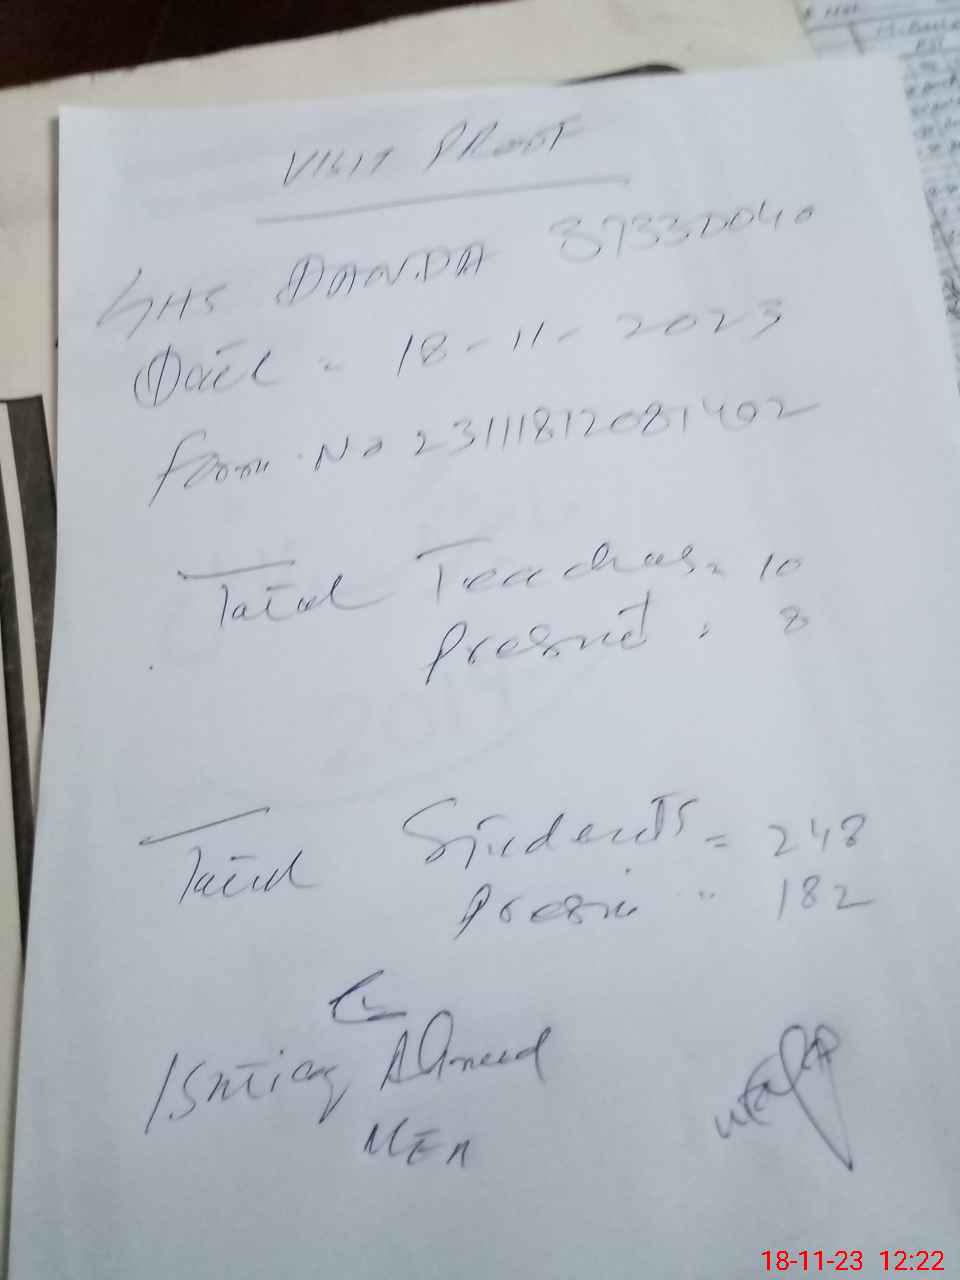 VISIT PROOF
GHS DANDA 37330040
Date - 18-11-2023
Form No 23111812081402
Total Teachers = 10
Present = 8
Total Students = 248
Present = 182
Ishtiaq Ahmed
MEA
18-11-23 12:22